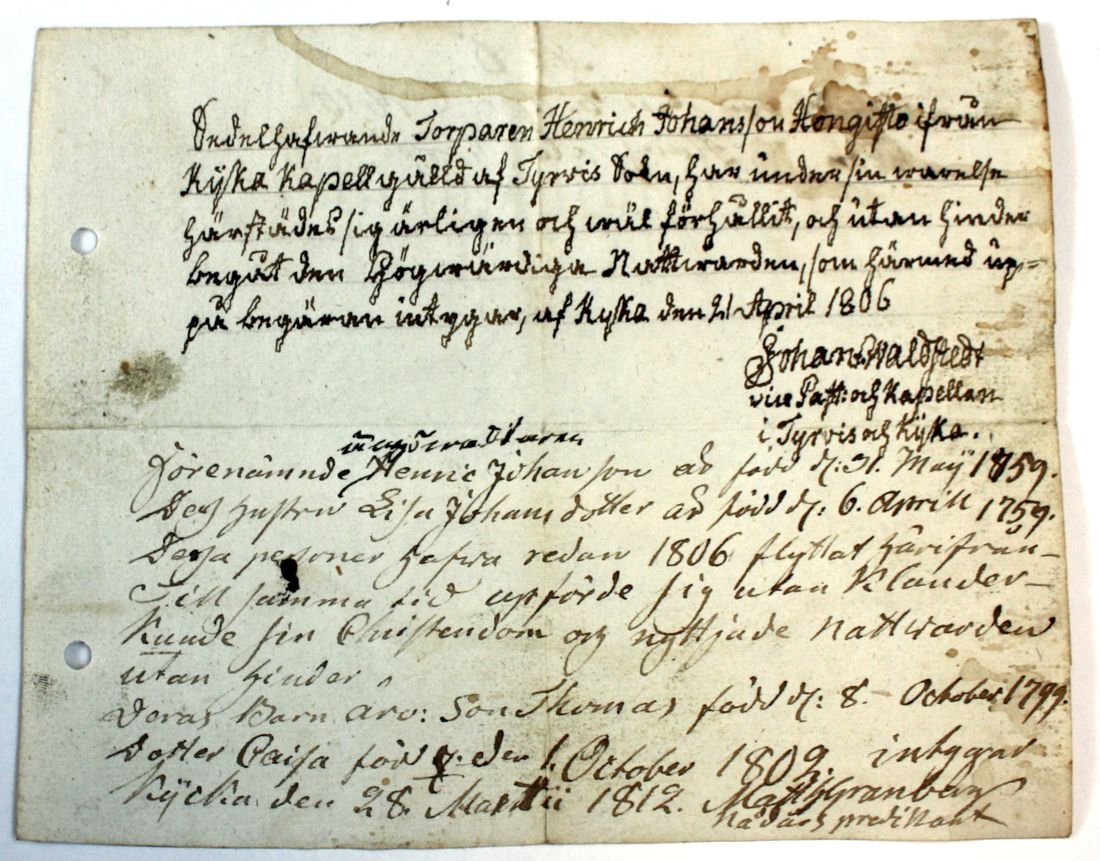 Sedelhafwande Torparen Henrich Johansson Hongisto ifrån
Kyska Kapellgälld af Tyrvis Sokn, har under sin warelse
härstädes sig ärligen och wäl förhållit, och utan hinder
begåt den Högwärdiga Nattwarden, som härmed up=
på begäran intygar, af Kyska den 21 April 1806
Johan Waldstedt
vice Past: och Kapellan
i Tyrvis och Kyka.
Förenämnde Henric Johansson är född d: 31. Maÿ 1759.
Dess hustru Lisa Johansdotter är född d: 6. Aprill 1759.
Dessa personer hafwa redan 1806 flyttat härifrån -
Till samma tid upförde sig utan Klander -
Kunde sin Christendom og nyttjade Nattwarden
utan hinder
Deras Barn äro: Son Thomas född d: 8. October 1799.
Dotter Caisa född den 1. October 1802. intygar
Kÿcka den 28. Martii 1812. Matth Granberg
Nådårs predikant